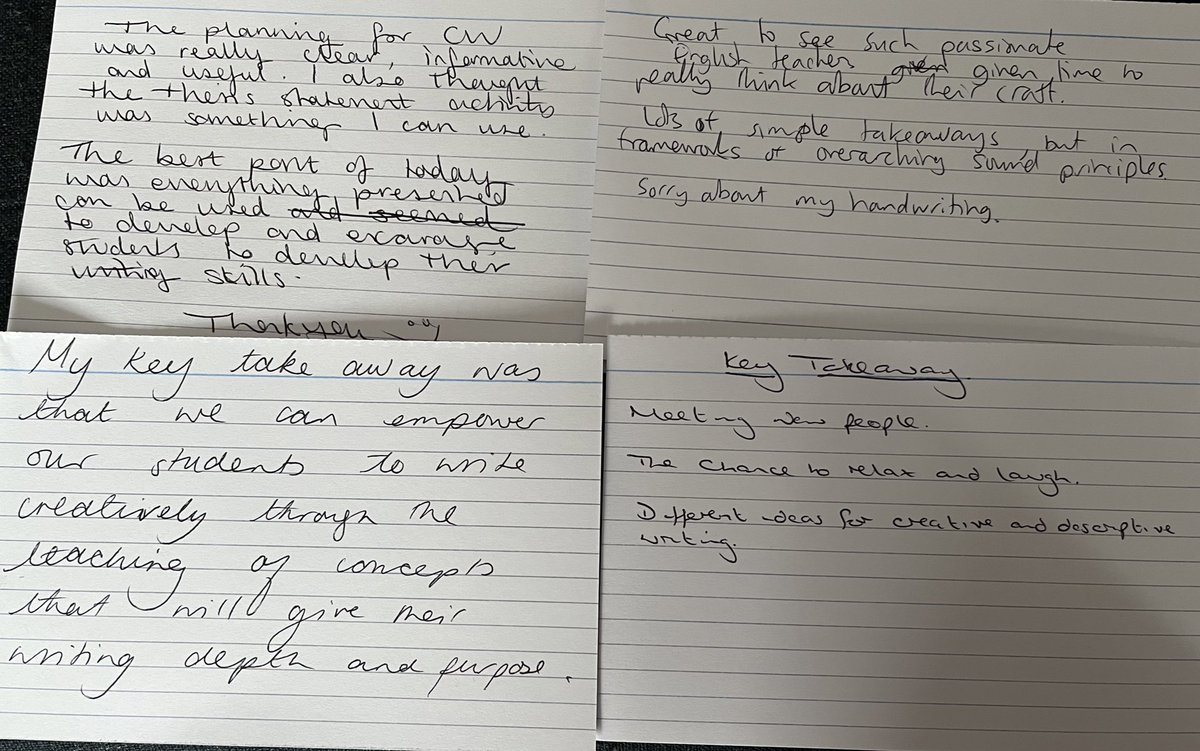 The planning for CW
was really clear, informative
and useful. I also thought
the thesis statement activity
was something I can use.
The best part of today
was everything presented
can be used and seemed
to develop and encourage
students to develop their
writing skills.
Thankyou
Great to see such passionate
English teachers given time to
really think about their craft.
Lots of simple takeaways, but in
frameworks of overarching sound principles.
Sorry about my handwriting.
My key take away was
that we can empower
our students to write
creatively through the
teaching of concepts
that will give their
writing depth and purpose.
Key Takeaway
Meeting new people.
The chance to relax and laugh.
Different ideas for creative and descriptive
writing.